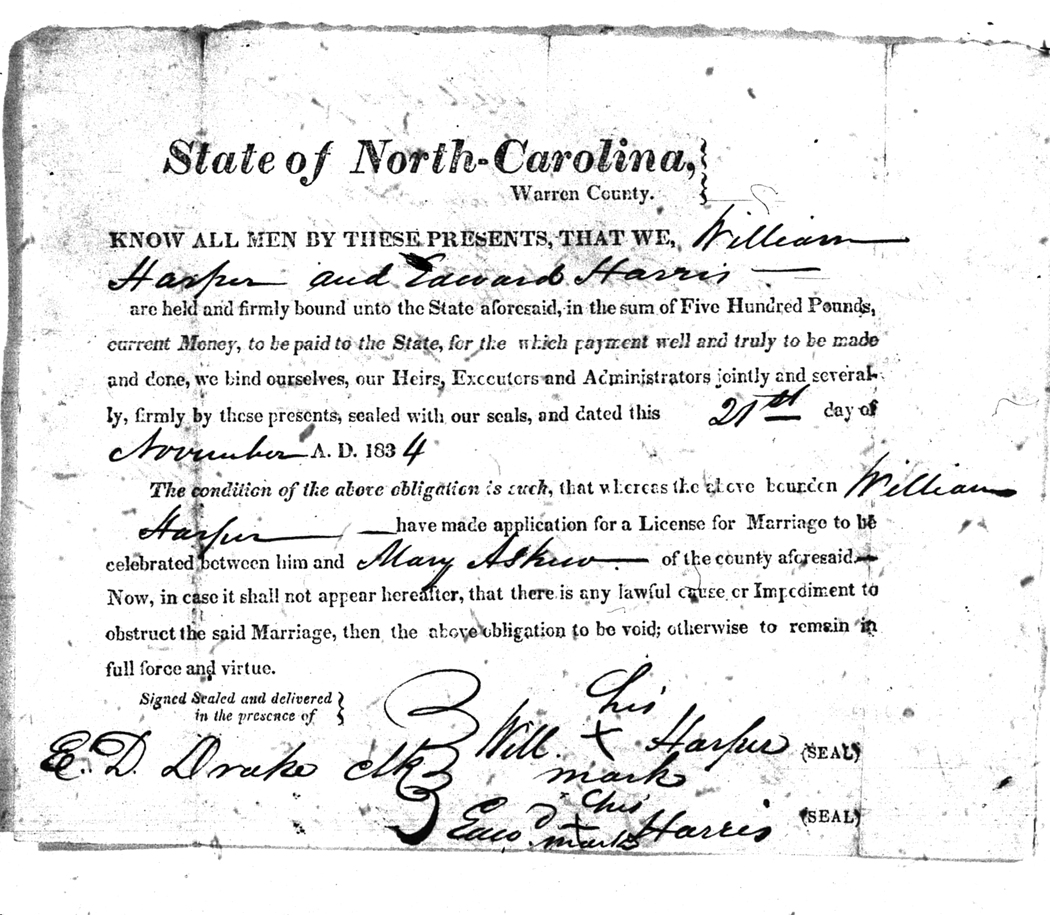 State of North-Carolina,
Warren County.
KNOW ALL MEN BY THESE PRESENTS, THAT WE, William
Harper and Edward Harris
are held and firmly bound unto the State aforesaid, in the sum of Five Hundred Pounds,
current Money, to be paid to the State, for the which payment well and truly to be made
and done, we bind ourselves, our Heirs, Executors and Administrators jointly and several-
ly, firmly by these presents, sealed with our seals, and dated this 21st day of
November A. D. 1834
The condition of the above obligation is such, that whereas the above bounden William
Harper have made application for a License for Marriage to be
celebrated between him and Mary Askew of the county aforesaid.
Now, in case it shall not appear hereafter, that there is any lawful cause or Impediment to
obstruct the said Marriage, then the above obligation to be void; otherwise to remain in
full force and virtue.
Signed Sealed and delivered
in the presence of
his
Will. X Harper (SEAL)
E. D. Drake clk
mark
his
Edwd. X Harris (SEAL)
mark